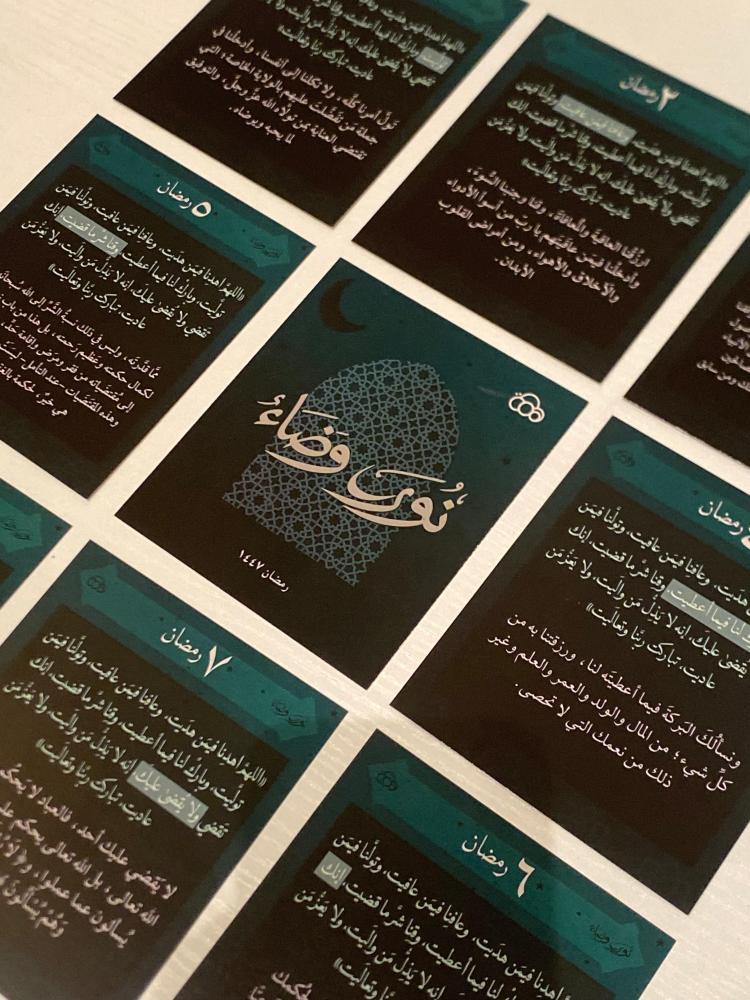 توليت، وبارك لنا فيما أعطيت، وقنا شر ما قضيت، إنك
تقضي ولا يقضى عليك، إنه لا يذل من واليت، ولا يعز من
عاديت، تباركت ربنا وتعاليت»
تولَّ أمرنا كلَّه، ولا تكلنا إلى أنفسنا، وأدخلنا في
جملة مَن تفضَّلتَ عليهم بالولاية الخاصة؛ التي
تقتضي العناية بمن تولاه الله عزَّ وجل، والتوفيق
لما يحبه ويرضاه.
٢ رمضان
«اللهمَّ اهدنا فيمَن هديت، وعافنا فيمَن عافيت، وتولَّنا فيمَن
تولَّيت، وبارك لنا فيما أعطيت، وقنا شر ما قضيت، إنك
تقضي ولا يقضى عليك، إنه لا يَذِلُّ مَن واليت، ولا يَعِزُّ مَن
عاديت، تباركت ربَّنا وتعاليت»
ارزُقنا العافيةَ والمُعافاةَ، وقنا وجنبنا السُّوءَ،
وأدخلنا فيمَن عافيتَهم يا ربّ من أسوأ الأدواء
والأخلاق والأهواء، ومن أمراض القلوب
والأبدان.
٥ رمضان
«اللهمَّ اهدنا فيمَن هديت، وعافنا فيمَن عافيت، وتولَّنا فيمَن
تولَّيت، وبارك لنا فيما أعطيت، وقنا شر ما قضيت، إنك
تقضي ولا يقضى عليك، إنه لا يَذِلُّ مَن واليت، ولا يَعِزُّ مَن
عاديت، تباركت ربَّنا وتعاليت»
ممَّا قدَّرتَه، وليس في ذلك نسبةُ الشَّرِّ إلى الله سبحانه
لكمال حكمته وعظيم رحمته، بل هذا من باب
إلى مُقتضَياته من فقر ومرض وإقامة حدٍّ،
وهذه المُقتضَيات -عند التأمل- ليست
هي خيرٌ، لحكمة بالغة
نُورٌ وَضَاءٌ
رمضان ١٤٤٧
رمضان
هديت، وعافنا فيمَن عافيت، وتولَّنا فيمَن
لنا فيما أعطيت، وقنا شر ما قضيت، إنك
يقضى عليك، إنه لا يَذِلُّ مَن واليت، ولا يَعِزُّ مَن
عاديت، تباركت ربَّنا وتعاليت»
ونسألُكَ البَركةَ فيما أعطيتَه لنا، ورزقتنا به من
كلِّ شيء؛ من المال والولد والعمر والعلم وغير
ذلك من نعمك التي لا تحصى.
٧ رمضان
«اللهمَّ اهدنا فيمَن هديت، وعافنا فيمَن عافيت، وتولَّنا فيمَن
تولَّيت، وبارك لنا فيما أعطيت، وقنا شر ما قضيت، إنك
تقضي ولا يقضى عليك، إنه لا يَذِلُّ مَن واليت، ولا يَعِزُّ مَن
عاديت، تباركت ربَّنا وتعاليت»
لا يَقضي عليك أحد، فالعباد لا يَحكُمون
الله تعالى، بل الله تعالى يحكم عليهم
يُسألون عما عملوا، و﴿لَا
وَهُمْ يُسْأَلُونَ﴾
٦ رمضان
نُورٌ وَضَاءٌ
اهدنا فيمَن هديت، وعافنا فيمَن عافيت، وتولَّنا فيمَن
لنا فيما أعطيت، وقنا شر ما قضيت، إنك
عليك، إنه لا يَذِلُّ مَن واليت، ولا يَعِزُّ مَن
تباركت ربَّنا وتعاليت»